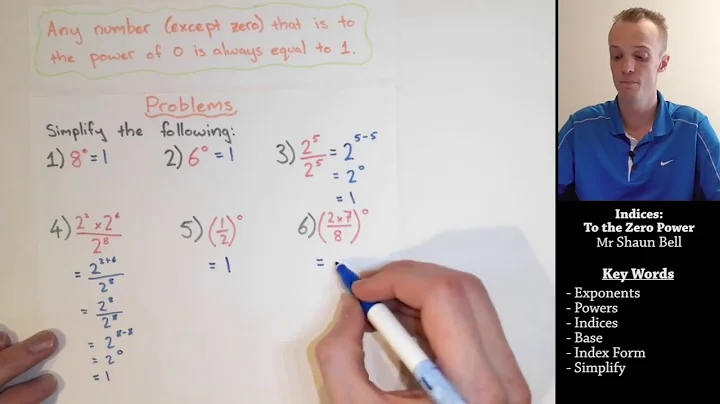 Any number (except zero) that is to
the power of 0 is always equal to 1.
Problems
Simplify the following:
1) 8⁰ = 1
2) 6⁰ = 1
3) 2⁵/2⁵ = 2⁵⁻⁵
= 2⁰
= 1
4) 2² × 2⁶ / 2⁸
= 2²⁺⁶/2⁸
= 2⁸/2⁸
= 2⁸⁻⁸
= 2⁰
= 1
5) (1/2)⁰
= 1
6) (2 × 7 / 8)⁰
=
Indices:
To the Zero Power
Mr Shaun Bell
Key Words
- Exponents
- Powers
- Indices
- Base
- Index Form
- Simplify